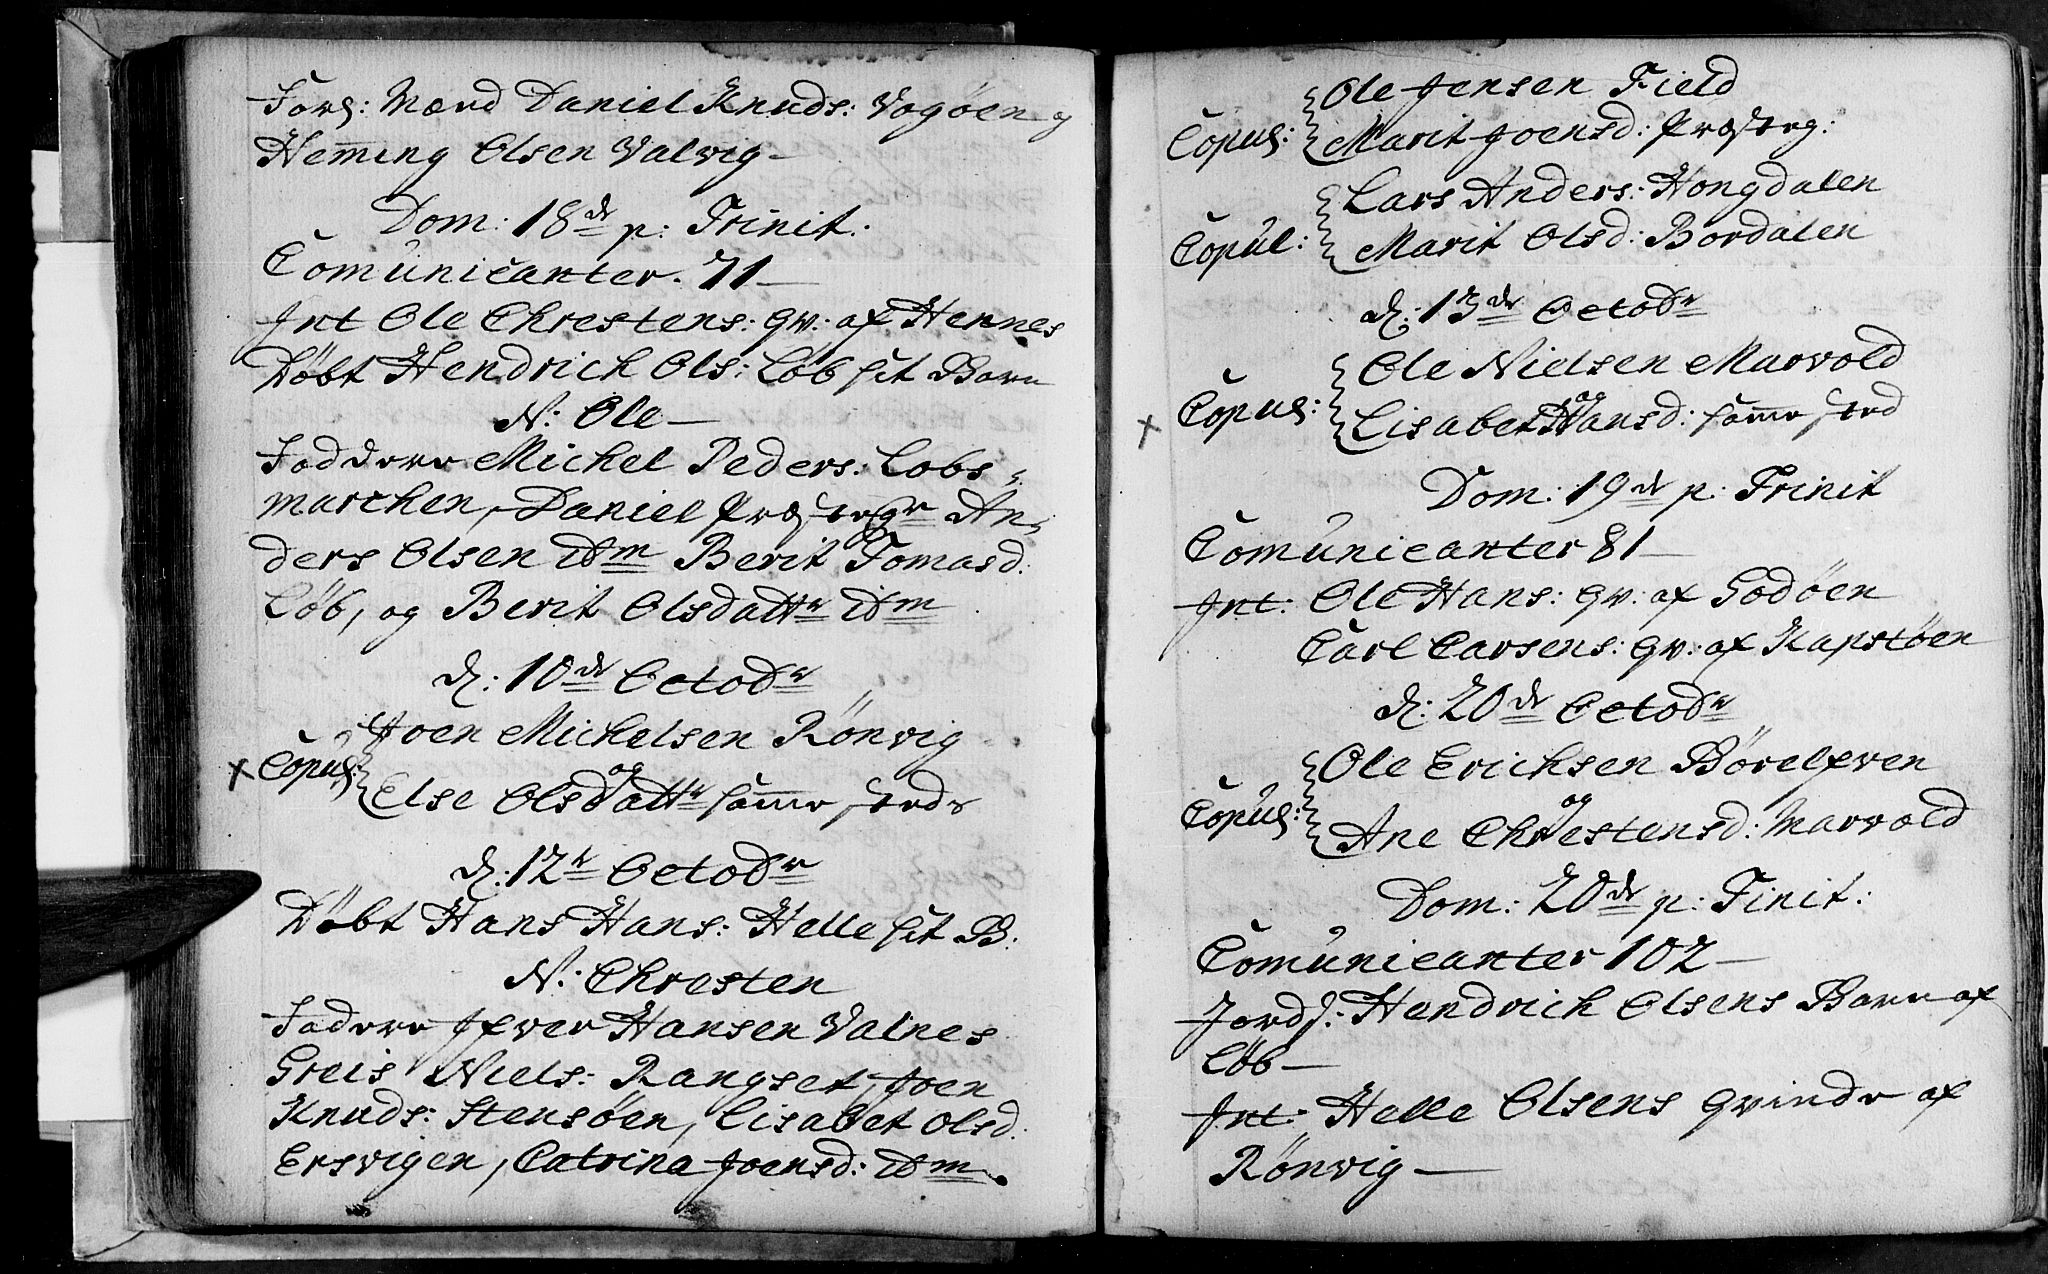 Forl: Mænd Daniel Knuds: Vogöen og
Hem̄ing Olsen Valvig –
Dom: 18de p: Trinit:
Com̄unicanter. 71 –
Int Ole Chrestens: qv: af Hennes
Döbt Hendrich Ols: Löb sit Barn
N: Ole –
Faddere Michel Peders: Lobs-
marchen, Daniel Præstegr An-
ders Olsen Ibm Berit Tomasd:
Löb, og Berit Olsdattr Ibm
d: 10de Octobr
Joen Michelsen Rönvig
× Copul: og
Else Olsdattr sam̄e stæds
d: 12te Octobr
Döbt Hans Hans: Helle sit B:
N: Chresten
Fadere Ifver Hansen Valnes
Greis Niels: Rangset, Joen
Knuds: Stensöen, Lisabet Olsd:
Ersvigen, Catrina Joensd: Ibm.
Ole Jensen Field
Copul:
Marit Joensd: Præsteg:
Lars Anders: Hongdalen
Copul:
Marit Olsd: Bordalen
d: 13de Octobr
Ole Nielsen Marvold
× Copul: og
Lisabet Hansd: sam̄e sted
Dom: 19de p: Trinit
Com̄unicanter 81 –
Int: Ole Hans: qv: af Godöen
Carl Carsens: qv: af Kapstöen
d: 20de Octobr
Ole Erichsen Börelfven
Copul: og
Ane Chrestensd: Marvold
Dom: 20de p: Tinit:
Com̄unicanter 102 –
Jords: Hendrich Olsens Barn af
Löb –
Int: Helle Olsens qvinde af
Rönvig –